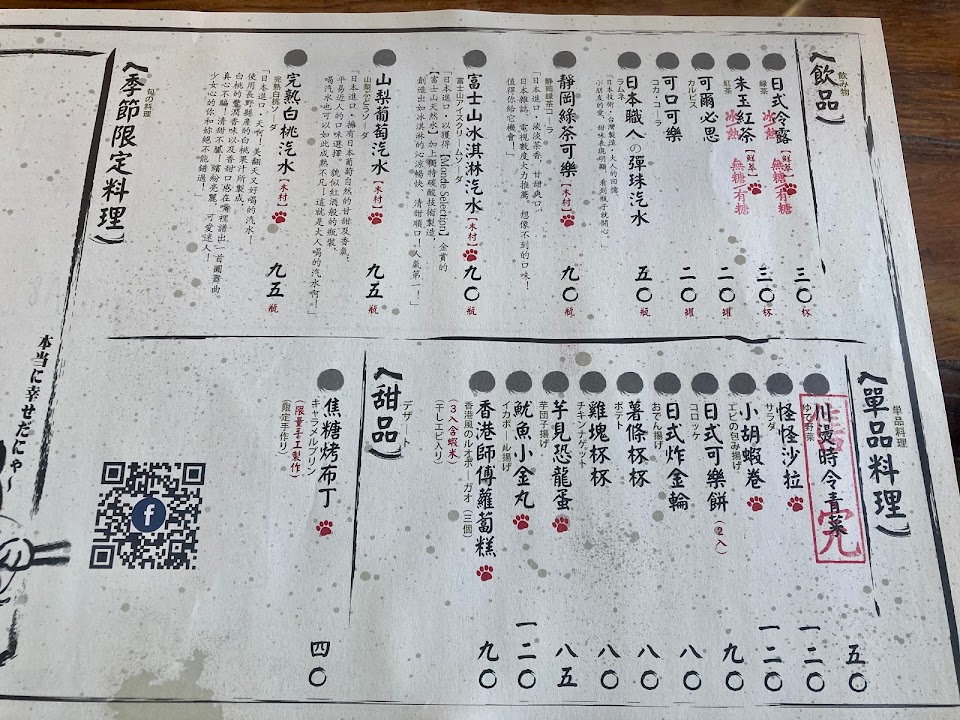 飲み物
︿飲品﹀
日式冷露
緑茶
冰 熱
【鮮萃】
無糖/有糖
三〇杯
朱玉紅茶
紅茶
冰 熱
【鮮萃】
無糖/有糖
三〇杯
可爾必思
カルピス
二〇罐
可口可樂
コカ・コーラ
二〇罐
日本職人の彈珠汽水
ラムネ
五〇瓶
靜岡綠茶可樂【木村】
静岡緑茶コーラ
「日本進口，淡淡茶香，甘甜爽口，
日本雜誌、電視數度大力推薦。想像不到的口味！
值得你給它機會！」
九〇瓶
富士山冰淇淋汽水【木村】
富士山アイスクリームソーダ
「日本進口，以獲得【Monde Selection】金賞的
【富士山天然水】加上獨特碳酸技術製造，
創造出如冰淇淋的沁涼暢快、清甜順口！人氣第一！」
九〇瓶
山梨葡萄汽水【木村】
山梨ぶどうソーダ
「日本進口，擁有日本葡萄自然的甘甜及香氣，
平易近人的口味選擇，貌似紅酒般的瓶裝，
喝汽水也可以如此成熟不凡！這就是大人喝的汽水啊！」
九五瓶
完熟白桃汽水【木村】
完熟白桃ソーダ
「日本進口，天啊！美翻天又好喝的汽水！
使用長野縣產的白桃果汁所製成，
白桃的驚潤香味以及香甜口感在嘴裡譜出一首圓舞曲，
真心不騙！清甜不膩！繽紛亮麗、可愛迷人！
少女心的你和妳絕不能錯過！
九五瓶
旬の料理
︿季節限定料理﹀
単品料理
︿單品料理﹀
川燙時令青菜
ゆで野菜
售完
五〇
怪怪沙拉
サラダ
一二〇
小胡蝦卷
エビの包み揚げ
一二〇
日式可樂餅（２入）
コロッケ
九〇
日式炸金輪
おでん揚げ
八〇
薯條杯杯
ポテト
八〇
雞塊杯杯
チキンナゲット
八〇
芋見恐龍蛋
芋団子揚げ
八五
魷魚小金丸
イカボール揚げ
一二〇
香港師傅蘿蔔糕
香港風のルオボーガオ（三個）
（３入含蝦米）
（干しエビ入り）
九〇
デザート
︿甜品﹀
焦糖烤布丁
キャラメルプリン
（限量手工製作）
（限定手作り）
四〇
本当に幸せだにゃ～